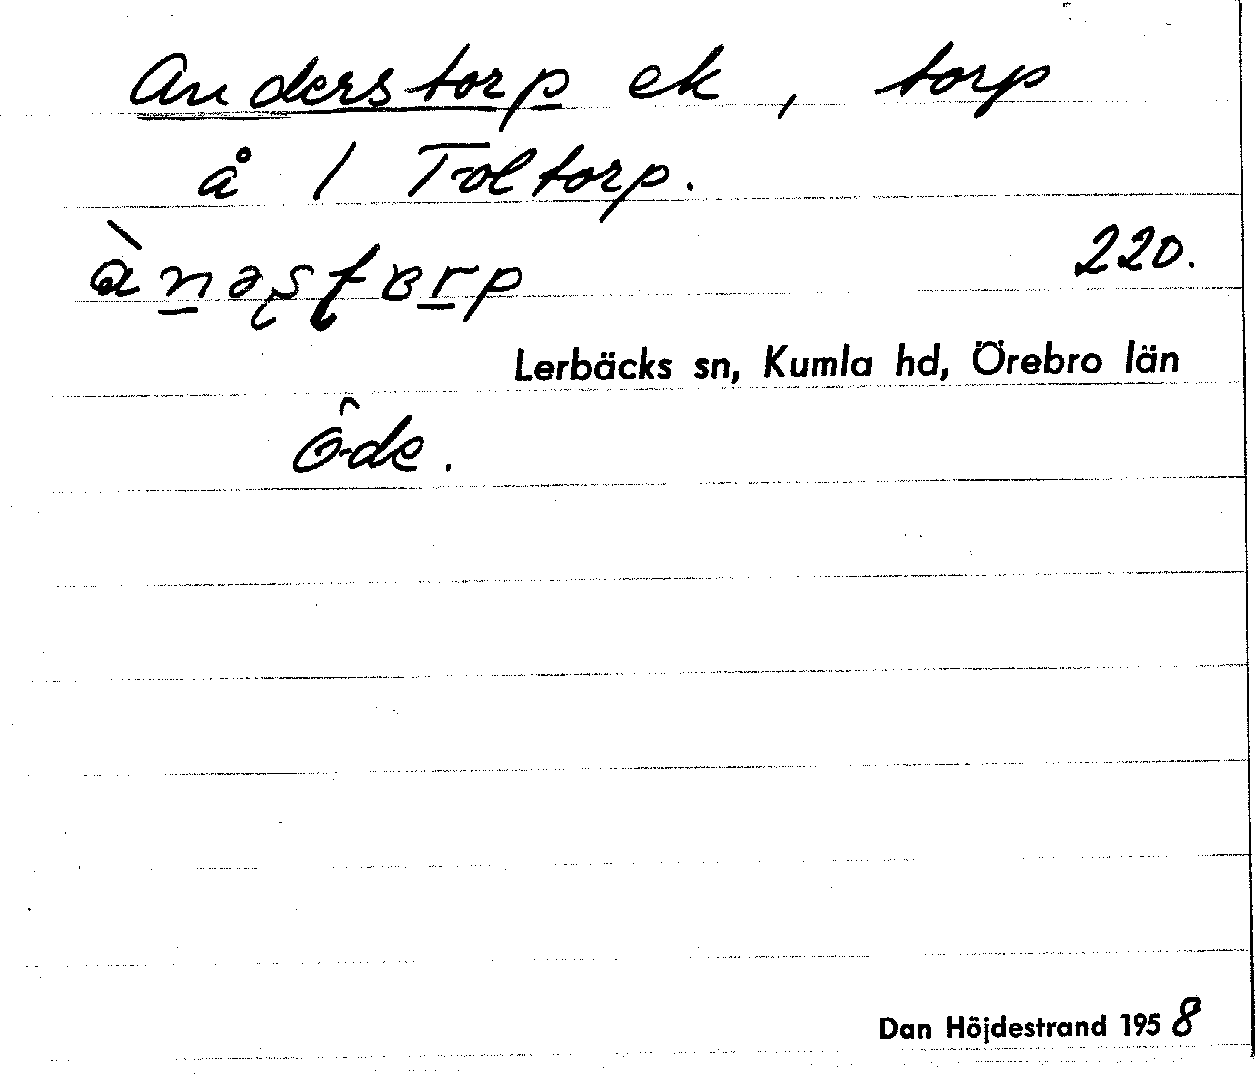 Anderstorp ek, torp
å / Toltorp.
220.
Lerbäcks sn, Kumla hd, Örebro län
Öde.
Dan Höjdestrand 1958